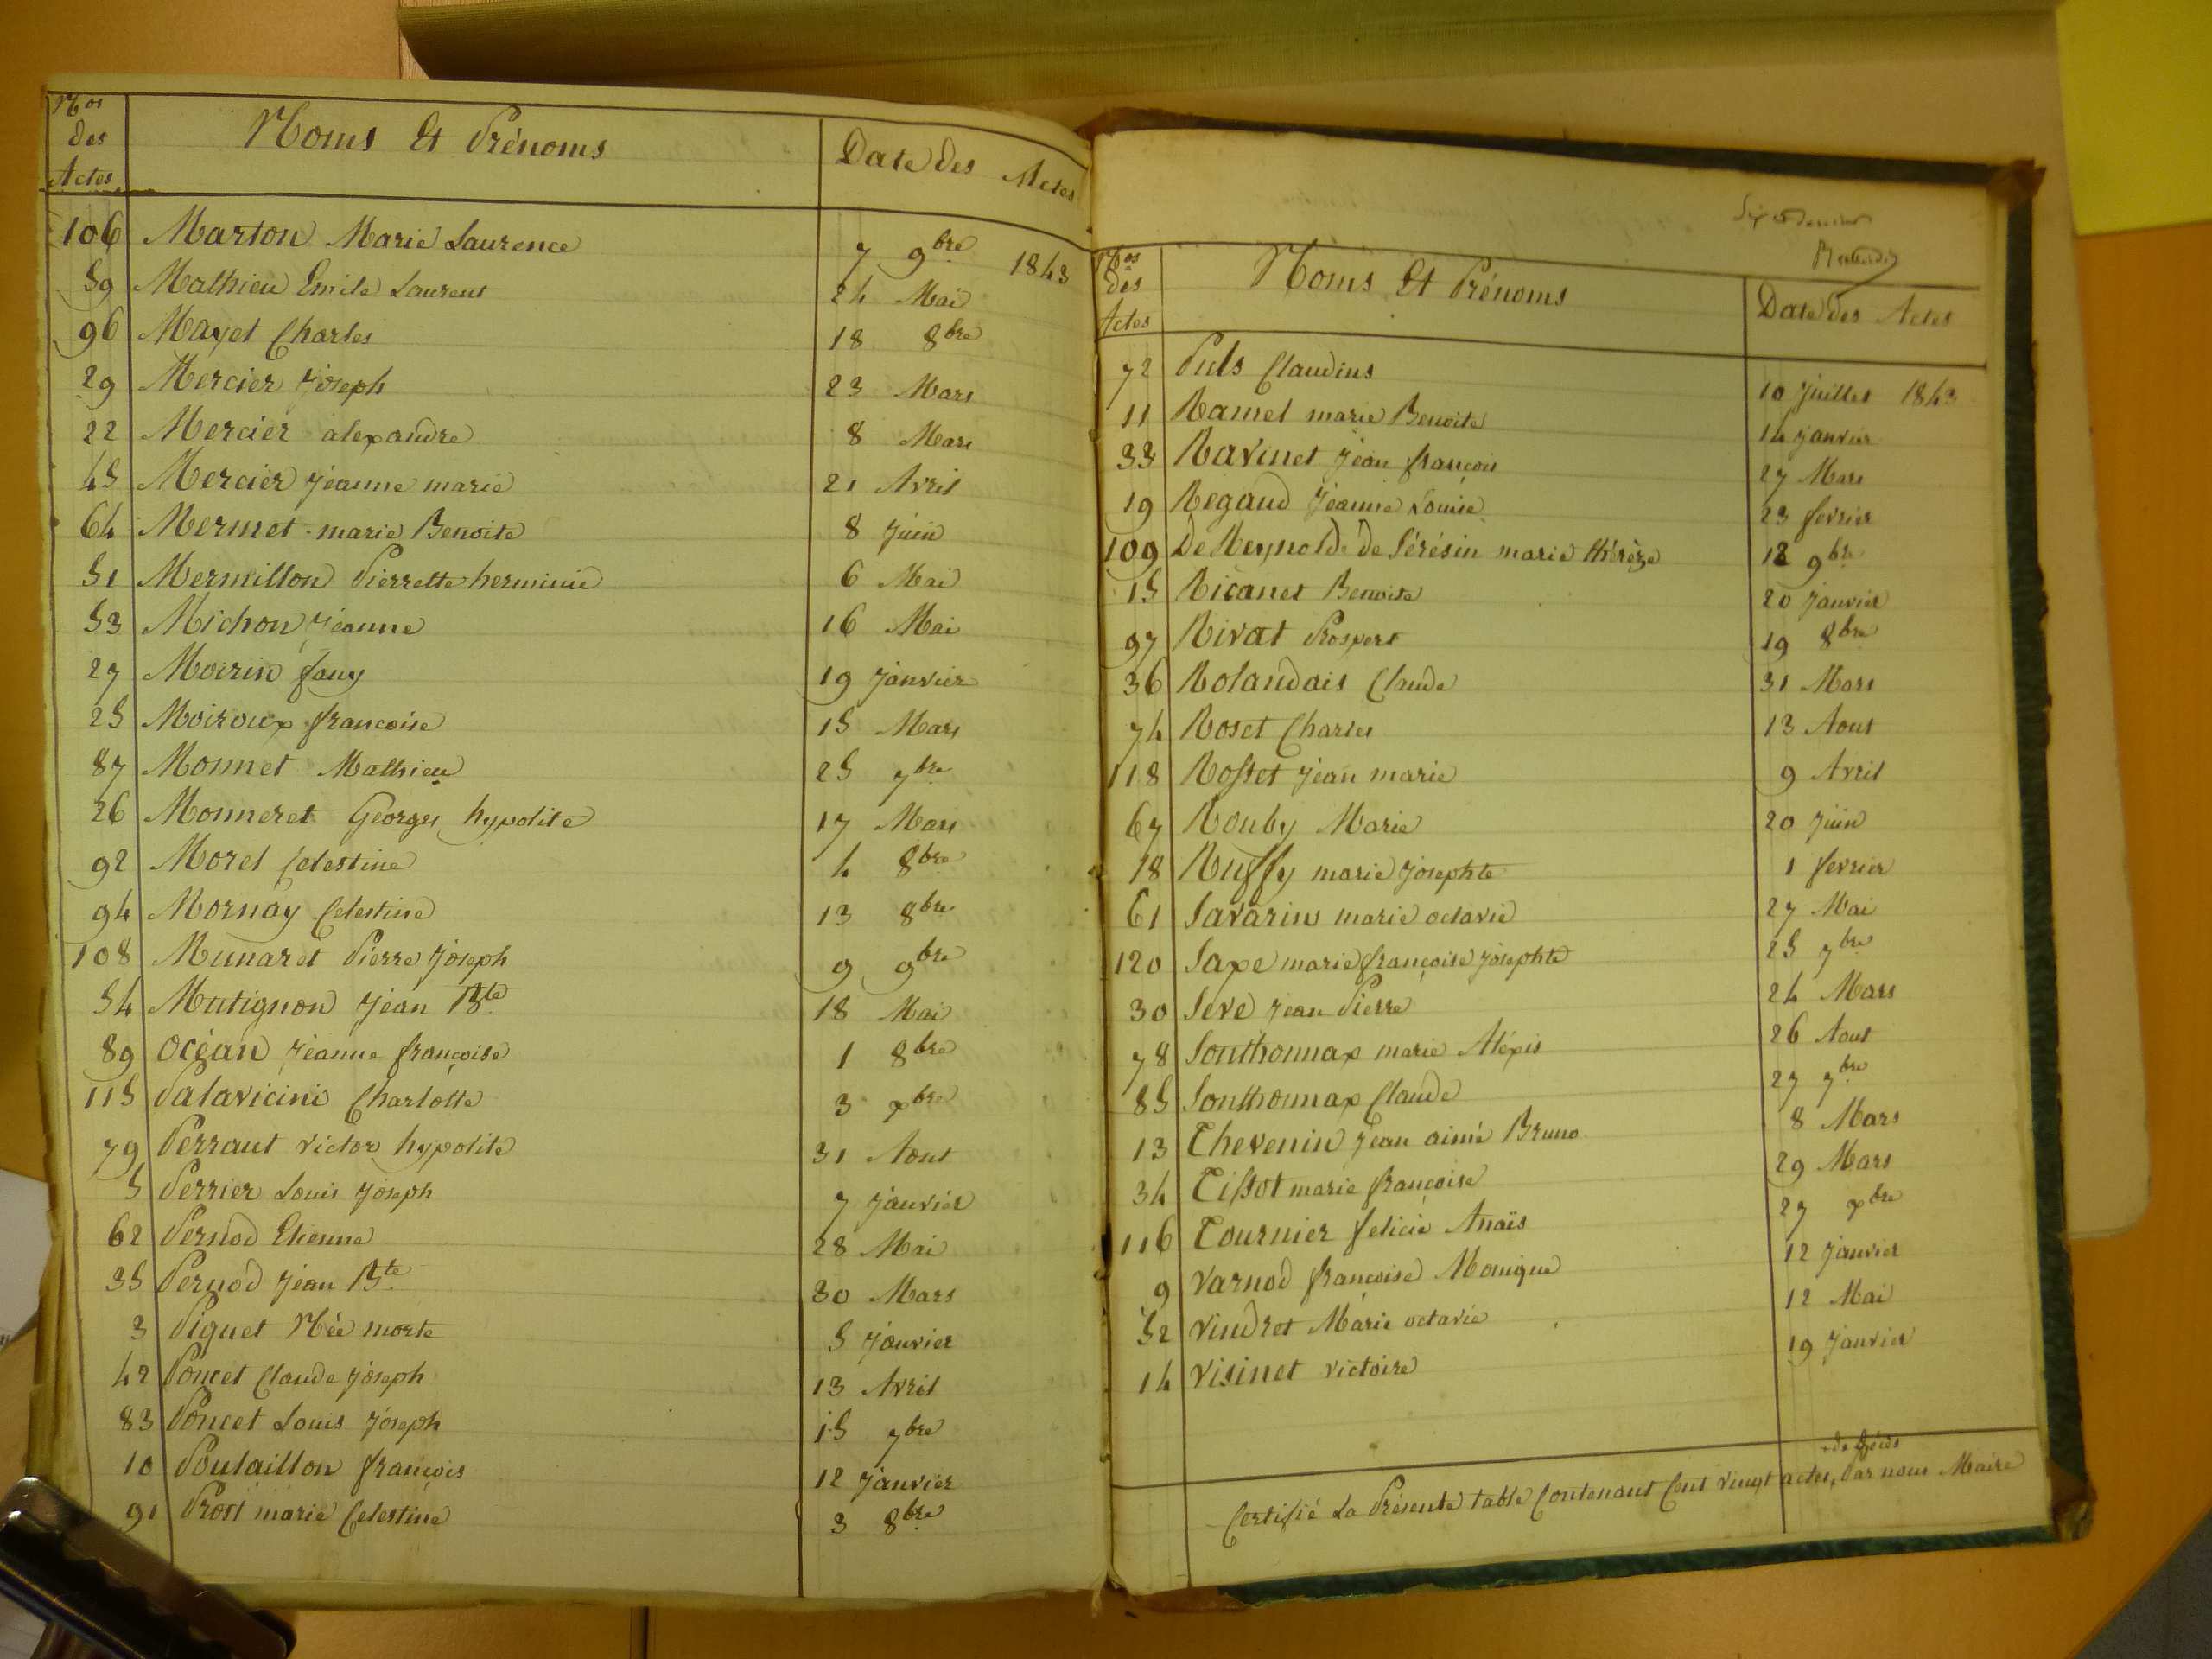 Nos
des
Actes
Noms Et Prénoms
Date des Actes
106 Marton Marie Laurence 7 9bre 1843
59 Mathieu Emile Laurent 24 Mai
96 Mayet Charles 18 8bre
29 Mercier Joseph 23 Mars
22 Mercier alexandre 8 Mars
45 Mercier Jeanne marie 21 Avril
64 Mermet marie Benoite 8 Juin
51 Mermillon Pierrette herminie 6 Mai
53 Michon Jeanne 16 Mai
27 Moirin fany 19 Janvier
25 Moiroux francoise 15 Mars
87 Monnet Mathieu 25 7bre
26 Monneret Georges hypolite 17 Mars
92 Morel Celestine 4 8bre
94 Mornay Celestine 13 8bre
108 Munaret Pierre Joseph 9 9bre
54 Mutignon Jean Bte 18 Mai
89 océan Jeanne françoise 1 8bre
115 Palavicini Charlotte 3 xbre
79 Perraut victor hypolite 31 Aout
5 Perrier Louis Joseph 7 Janvier
62 Pernod Etienne 28 Mai
35 Pernod Jean Bte 30 Mars
3 Piguet Née morte 5 Janvier
42 Poncet Claude Joseph 13 Avril
83 Poncet Louis Joseph 15 7bre
10 Poulaillon françois 12 Janvier
91 Prost marie Celestine 3 8bre
Six et dernier
Nos
des
Actes
Noms Et Prénoms
Date des Actes
72 Puls Claudius 10 Juillet 1843
11 Ramel marie Benoite 14 Janvier
33 Ravinet Jean françois 27 Mars
19 Regaud Jeanne Louise 23 fevrier
109 De Reynolds de Sérésin marie thérèze 12 9bre
15 Ricanet Benoite 20 Janvier
97 Rivat Prosper 19 8bre
36 Rolandais Claude 31 Mars
74 Roset Charles 13 Aout
118 Rosset Jean marie 9 Avril
67 Rouby Marie 20 Juin
18 Ruffy marie Josephte 1 fevrier
61 Savarin marie octavie 27 Mai
120 Saxe marie françoise Josephte 25 7bre
30 Seve Jean Pierre 24 Mars
78 Sonthonnax marie Aléxis 26 Aout
85 Sonthonnax Claude 27 7bre
13 Thevenin Jean aimé Bruno 8 Mars
34 Tissot marie françoise 29 Mars
116 Tournier felicie Anaïs 27 xbre
9 Varnod françoise Monique 12 Janvier
52 Vindret Marie octavie 12 Mai
14 Visinet victoire 19 Janvier
de décès
Certifié La Présente table Contenant Cent vingt actes, Par nous Maire